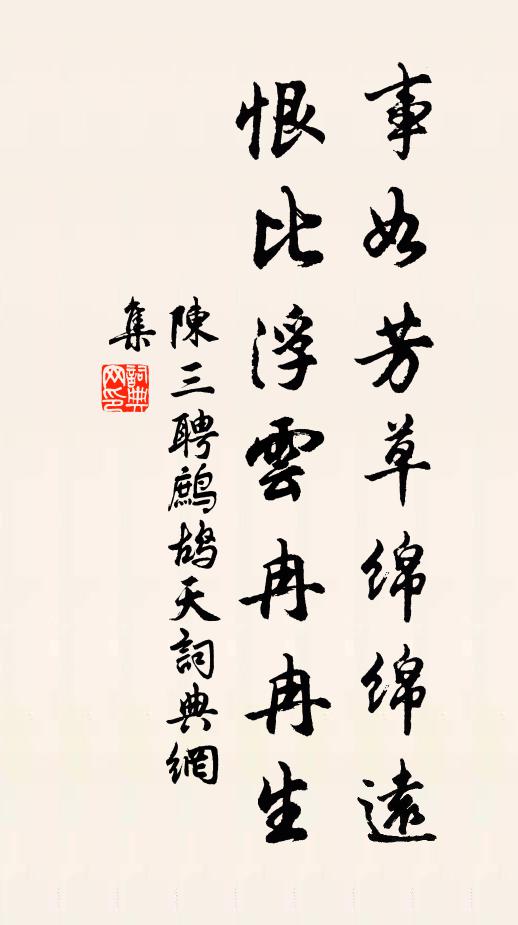 事如芳草绵绵遠
恨比浮雲冉冉生
陳三聘鷓鴣天詞典網
集
詞典
网印